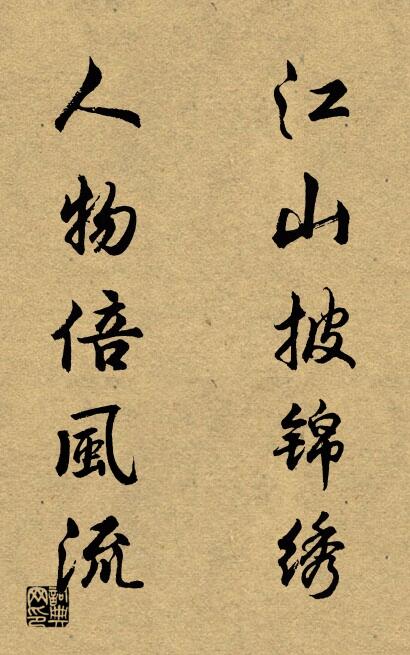 江山披锦绣
人物倍風流